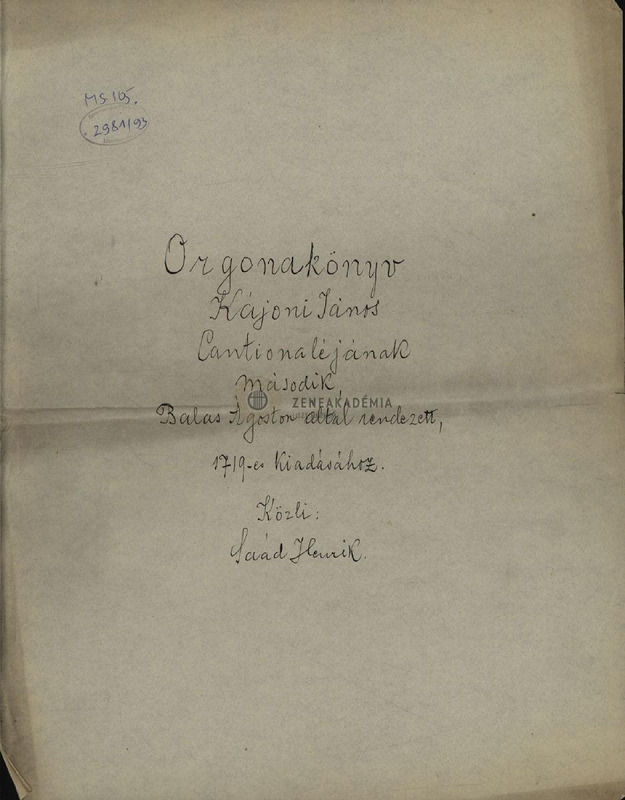 MS 105.
2981/93
Orgonakönyv
Kájoni János
Cantionaléjának
második,
ZENEAKADÉMIA
Balas Ágoston által rendezett,
1719-es Kiadásához.
Közli:
Saád Henrik.